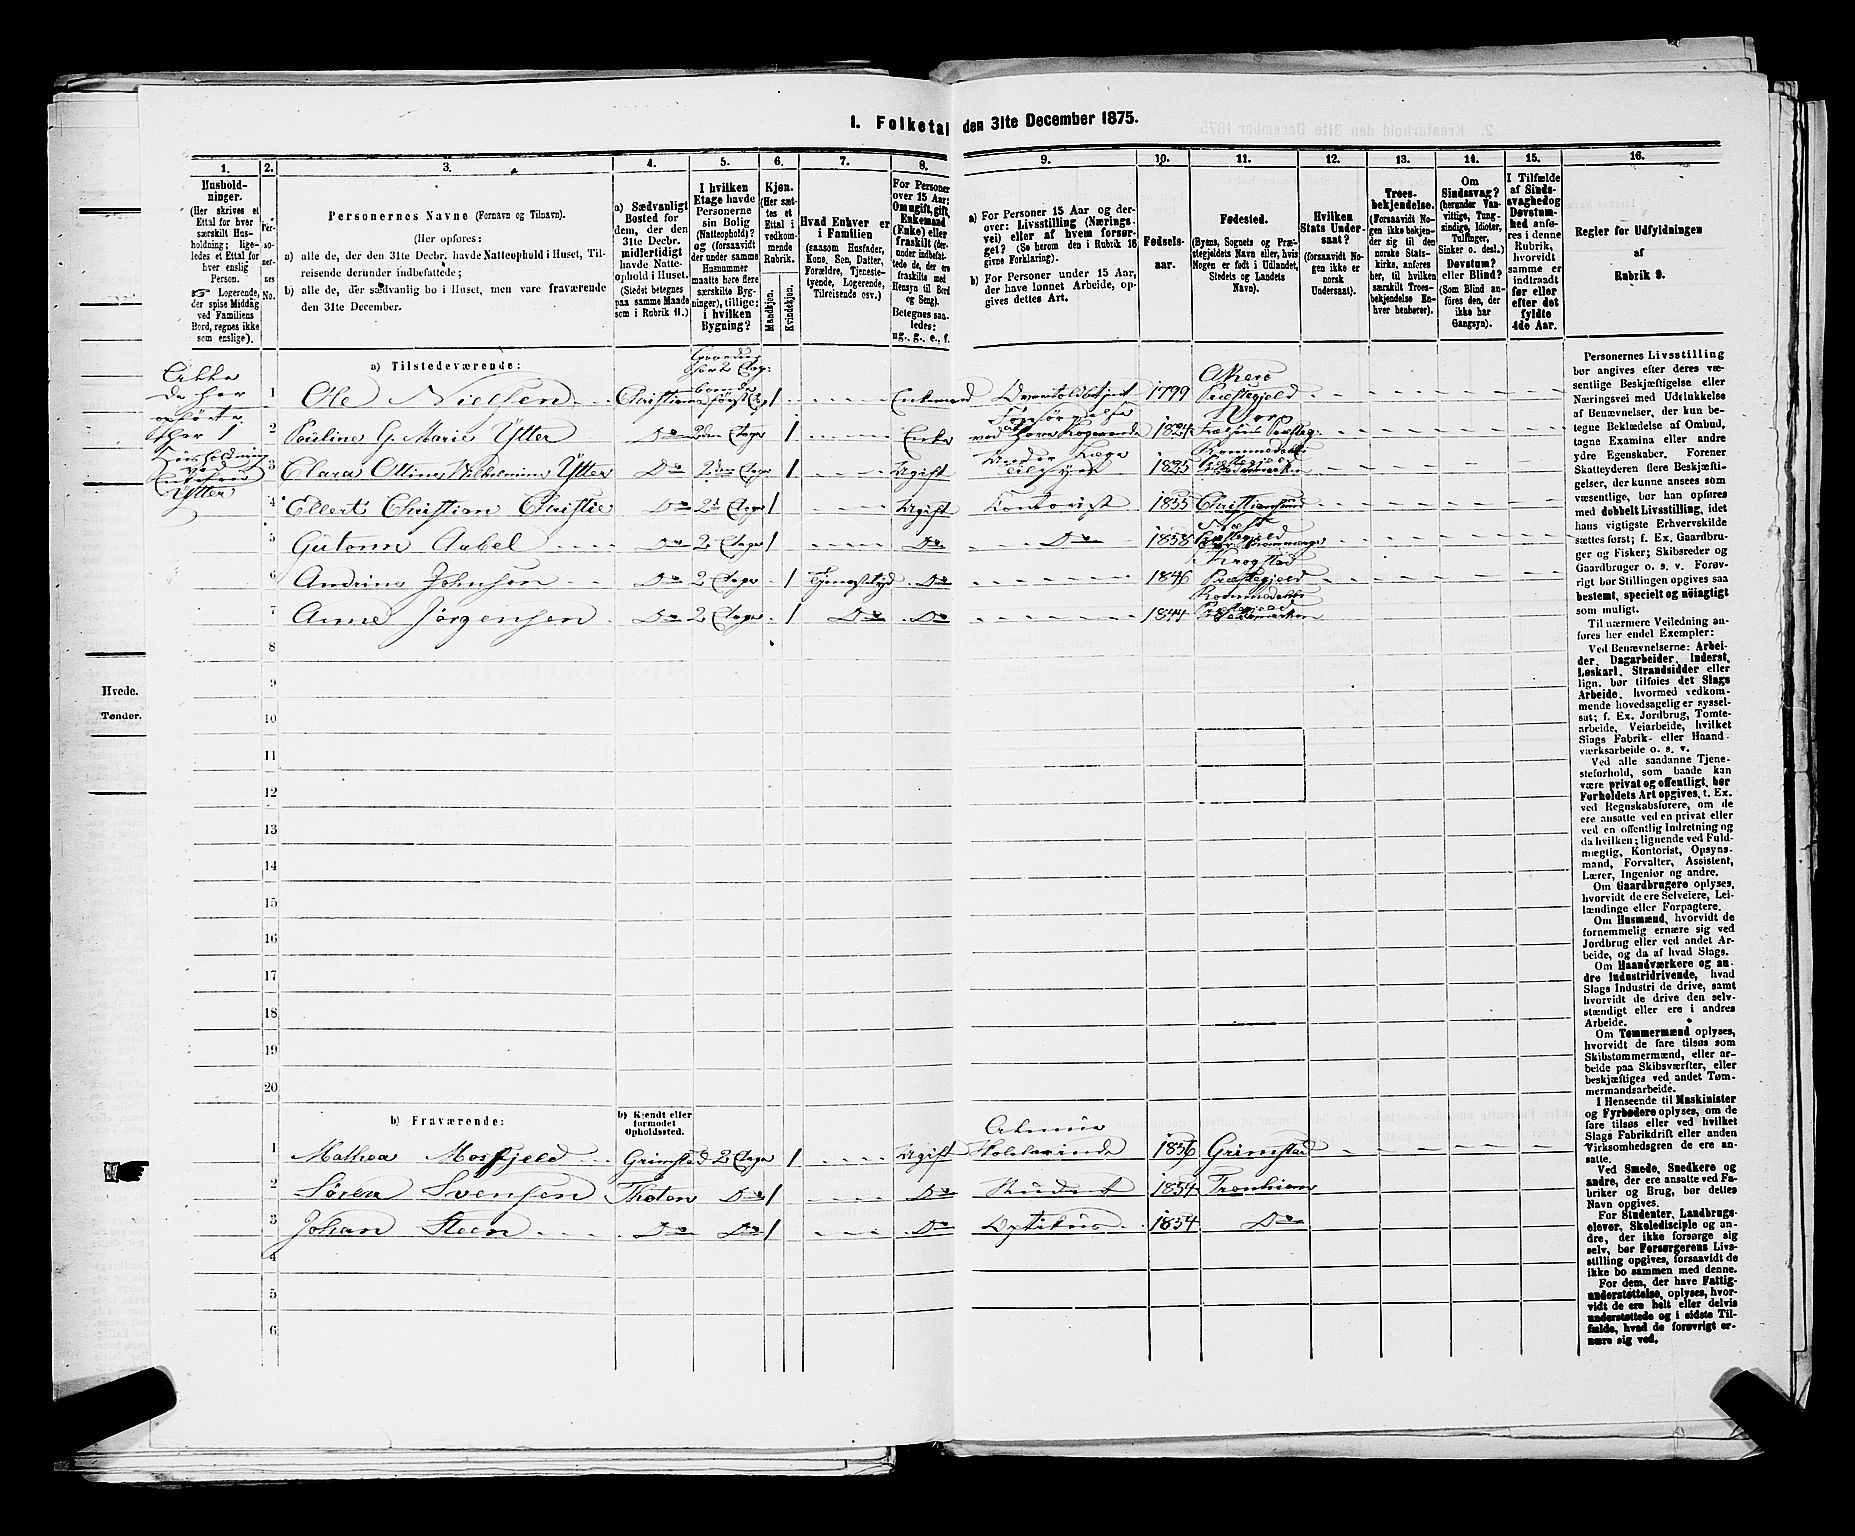 1. Folketal den 31te December 1875.
1.
Hushold-
ninger.
(Her skrives et
Ettal for hver
særskilt Hus-
holdning; lige-
ledes et Ettal
for hver
enslig
Person.
Logerende,
der spise Middag
ved Familiens
Bord, regnes ikke
som enslige).
2.
Per-
so-
ner-
nes
No.
3.
Personernes Navne (Fornavn og Tilnavn).
(Her opføres:
a) alle de, der den 31te Decbr. havde Natteophold i Huset, Til-
reisende derunder indbefattede;
b) alle de, der sædvanlig bo i Huset, men vare fraværende
den 31te December.
4.
a) Sædvanligt
Bosted for
dem, der den
31te Decbr.
midlertidigt
havde Natte-
ophold i Huset.
(Stedet betegnes
paa samme Maade
som i Rubrik 11.)
5.
I hvilken
Etage havde
Personerne
sin Bolig
(Natteophold)?
og (forsaavidt
der under samme
Husnummer
maatte høre flere
særskilte Byg-
ninger), tillige:
i hvilken
Bygning?
6.
Kjøn.
(Her sæt-
tes et
Ettal i
vedkom-
mende
Rubrik.
Mandkjøn.
Kvindekjøn.
7.
Hvad Enhver er
i Familien
(saasom Husfader,
Kone, Søn, Datter,
Forældre, Tjeneste-
tyende, Logerende,
Tilreisende osv.)
8.
For Personer
over 15 Aar:
Om ugift, gift,
Enkemand
(Enke) eller
fraskilt (der-
under indbefat-
tede de, der ere
fraskilte med
Hensyn til Bord
og Seng).
Betegnes saa-
ledes:
ug., g., e., f.
9.
a) For Personer 15 Aar og der-
over: Livsstilling (Nærings-
vei) eller af hvem forsør-
get? (Se herom den i Rubrik 16
givne Forklaring).
b) For Personer under 15 Aar,
der have lønnet Arbeide, op-
gives dettes Art.
10.
Fødsels-
aar.
11.
Fødested.
(Byens, Sognets og Præ-
stegjeldets Navn eller, hvis
Nogen er født i Udlandet,
Stedets og Landets
Navn).
12.
Hvilken
Stats Under-
saat?
(forsaavidt No-
gen ikke er
norsk
Undersaat).
13.
Troes-
bekjendelse.
(Forsaavidt No-
gen ikke bekjen-
der sig til den
norske Stats-
kirke, anføres
her, til hvilken
særskilt Troes-
bekjendelse En-
hver henhører).
14.
Om
Sindssvag?
(herunder Van-
vittige, Tung-
sindige, Idioter,
Tullinger,
Sinker o. desl.)
Døvstum?
eller Blind?
(Som Blind an-
føres den, der
ikke har
Gangsyn).
15.
I Tilfælde
af Sinds-
svaghed og
Døvstum-
hed anfø-
res i denne
Rubrik,
hvorvidt
samme er
indtraadt
før eller
efter det
fyldte
4de Aar.
16.
Regler for Udfyldningen
af
Rubrik 9.
a) Tilstedeværende:
1 Ole Nielsen Christiania 1 Enkemand 1799 Præstegjeld
2 Pauline G. Marie Ytter Do 2den Etage 1 Enke 1824
3 Clara Ottine Wilhelmine Ytter Do 2den Etage 1 Ugift 1835
4 Ellert Christian Christie Do 2d Etage 1 Ugift Kontorist 1855 Christiansund
5 Gutorm Aabel Do 2 Etage 1 Do Do 1858 Præstegjeld
6 Andrine Johnsen Do 2 Etage 1 Tjenestetyd Do 1846 Krogstad Præstegjeld
7 Anne Jørgensen Do 2 Etage 1 Do Do 1844 Præstegjeld
8
9
10
11
12
13
14
15
16
17
18
19
20
b) Fraværende:
b) Kjendt eller
formodet
Opholdssted.
1 Mathea Mosfjeld Grimstad 2 Etage 1 Ugift 1856 Grimstad
2 Søren Svensen Thoten Do 1 Do Student 1854 Tronhiem
3 Johan Steen Do Do 1 Do Optikus 1854 Do
4
5
6
Personernes Livsstilling
bør angives efter deres væ-
sentlige Beskjæftigelse eller
Næringsvei med Udelukkelse
af Benævnelser, der kun be-
tegne Beklædelse af Ombud,
tagne Examina eller andre
ydre Egenskaber. Forener
Skatteyderen flere Beskjæfti-
gelser, der kunne ansees som
væsentlige, bør han opføres
med dobbelt Livsstilling, idet
hans vigtigste Erhvervskilde
sættes først; f. Ex. Gaardbru-
ger og Fisker; Skibsreder og
Gaardbruger o. s. v. Forøv-
rigt bør Stillingen opgives saa
bestemt, specielt og nøiagtigt
som muligt.
Til nærmere Veiledning an-
føres her endel Exempler:
Ved Benævnelserne: Arbei-
der, Dagarbeider, Inderst,
Løskarl, Strandsidder eller
lign. bør tilføies det Slags
Arbeide, hvormed vedkom-
mende hovedsagelig er syssel-
sat; f. Ex. Jordbrug, Tomte-
arbeide, Veiarbeide, hvilket
Slags Fabrik- eller Haand-
værksarbeide o. s. v.
Ved alle saadanne Tjene-
steforhold, som baade kan
være privat og offentligt, bør
Forholdets Art opgives, t. Ex.
ved Regnskabsførere, om de
ere ansatte ved en privat eller
ved en offentlig Indretning og
da hvilken; lignende ved Fuld-
mægtig, Kontorist, Opsyns-
mand, Forvalter, Assistent,
Lærer, Ingeniør og andre.
Om Gaardbrugere oplyses,
hvorvidt de ere Selveiere, Lei-
lændinge eller Forpagtere.
Om Husmænd, hvorvidt de
fornemmelig ernære sig ved
Jordbrug eller ved andet Ar-
beide, og da af hvad Slags.
Om Haandværkere og an-
dre Industridrivende, hvad
Slags Industri de drive, samt
hvorvidt de drive den selv-
stændigt eller ere i andres
Arbeide.
Om Tømmermænd oplyses,
hvorvidt de fare tilsøs som
Skibstømmermænd, eller ar-
beide paa Skibsværfter, eller
beskjæftiges ved andet Tøm-
mermandsarbeide.
I Henseende til Maskinister
og Fyrbødere oplyses, om de
fare tilsøs eller ved hvilket
Slags Fabrikdrift eller anden
Virksomhedsgren de ere an-
satte.
Ved Smede, Snedkere og
andre, der ere ansatte ved Fa-
briker og Brug, bør dettes
Navn opgives.
For Studenter, Landbrugs-
elever, Skoledisciple og an-
dre, der ikke forsørge sig
selv, bør Forsørgerens Livs-
stilling opgives, forsaavidt de
ikke bo sammen med denne.
For dem, der have Fattig-
understøttelse, oplyses, hvor-
vidt de ere helt eller delvis
understøttede og i sidste Til-
fælde, hvad de forøvrigt er-
nære sig ved.
Hvede.
Tønder.